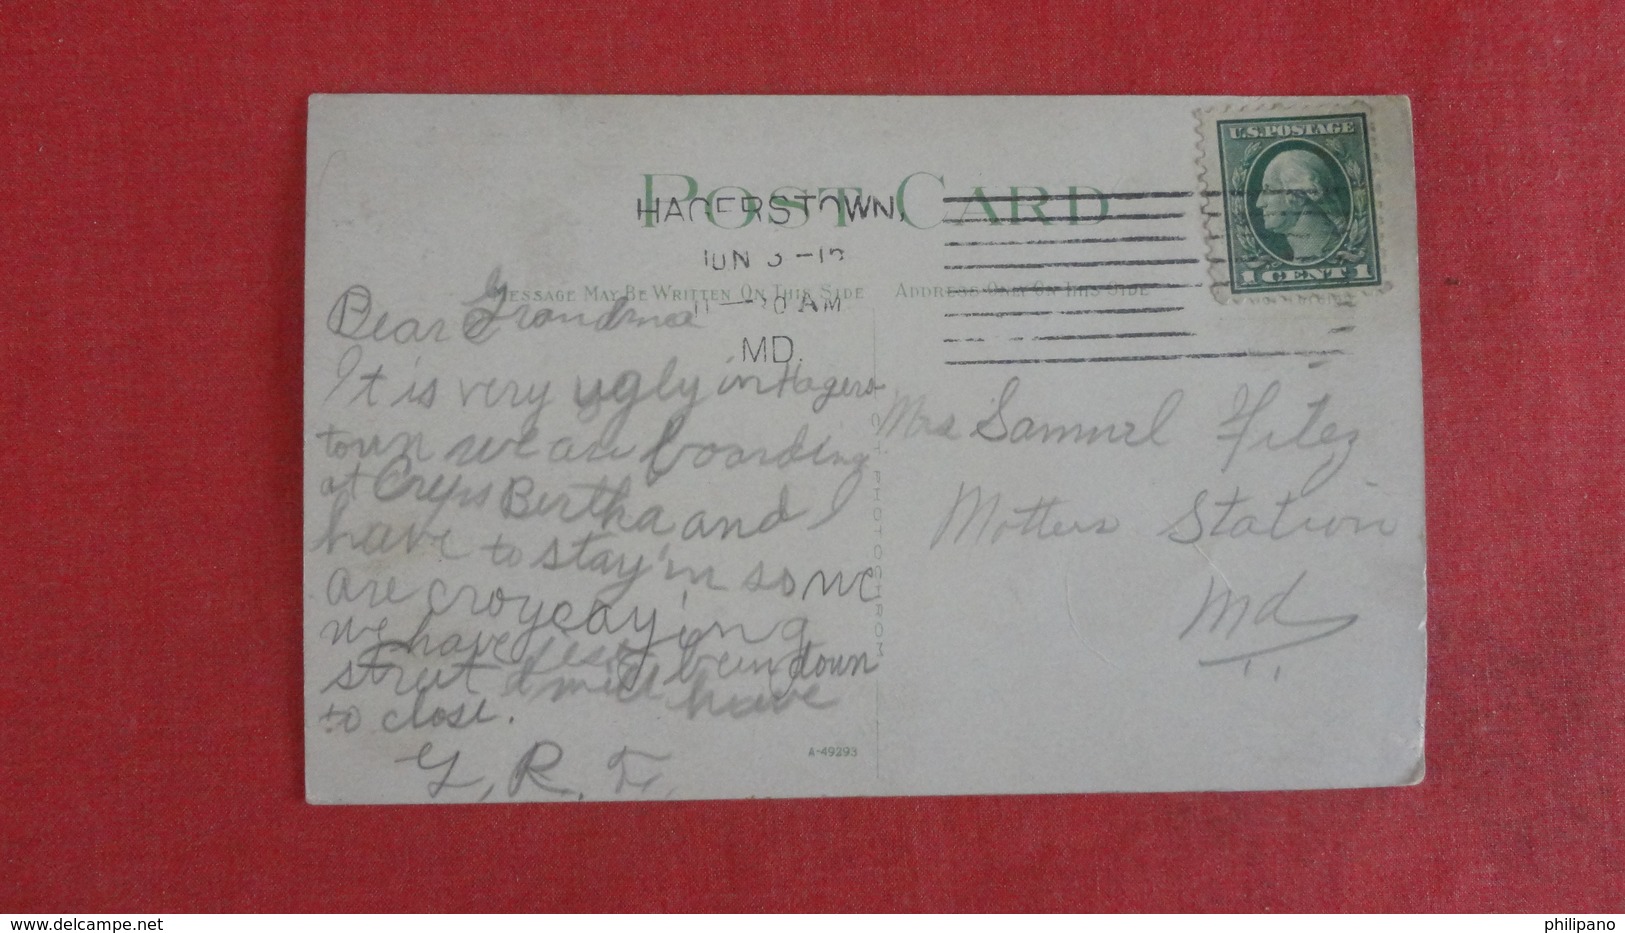 POST CARD
HAGERSTOWN,
JUN
AM
MD.
U.S. POSTAGE
1 CENT 1
MESSAGE MAY BE WRITTEN ON THIS SIDE
ADDRESS ONLY ON THIS SIDE
Dear Grandma
It is very ugly in Hagers-
town we are boarding
at Creps Bertha and I
have to stay in so we
are
we have been down
street I will have
to close.
Mrs Samuel
Motters Station
Md
PHOTOCHROM
A-49293
delcampe.net
philipano